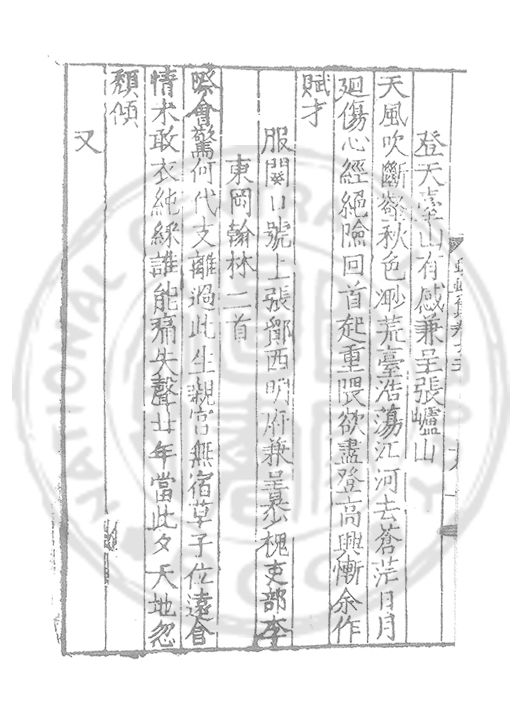 登天臺山有感兼呈張壚山
天風吹斷壑秋色渺荒臺浩蕩江河去蒼茫日月
廻傷心經絕險回首起重隈欲盡登高興慚余作
賦才
服闋口號上張鄮西明府兼呈槐吏部李
東岡翰林二首
際會驚何代支離過此生親宮無宿草子位遠會
情未敢衣純綵誰能痛失聲廿年當此夕天地忽
頹傾
又